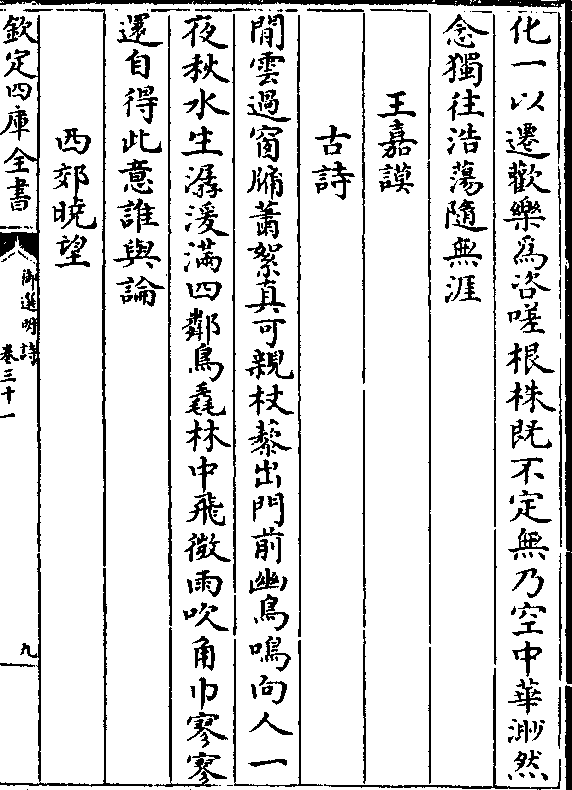 化一以遷歡樂爲咨嗟根株既不定無乃空中華渺然
念獨往浩蕩隨無涯
王嘉謨
古詩
閒雲過窗牖蕭絮真可親杖藜出門前幽鳥鳴向人一
夜秋水生潺湲滿四鄰鳥毳林中飛微雨吹角巾寥寥
還自得此意誰與論
西郊曉望
欽定四庫全書
御選明詩
卷三十一
九